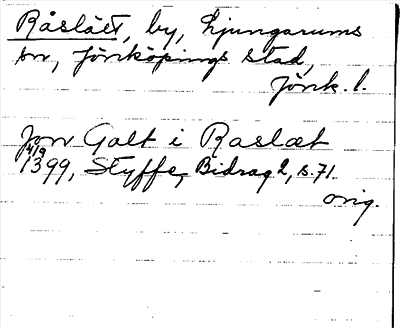 Råslätt, by, Ljungarums
sn, Jönköpings stad,
Jönk. l.
Jon Galt i Raslæt
14/9
1399, Styffe, Bidrag 2, s. 71.
orig.